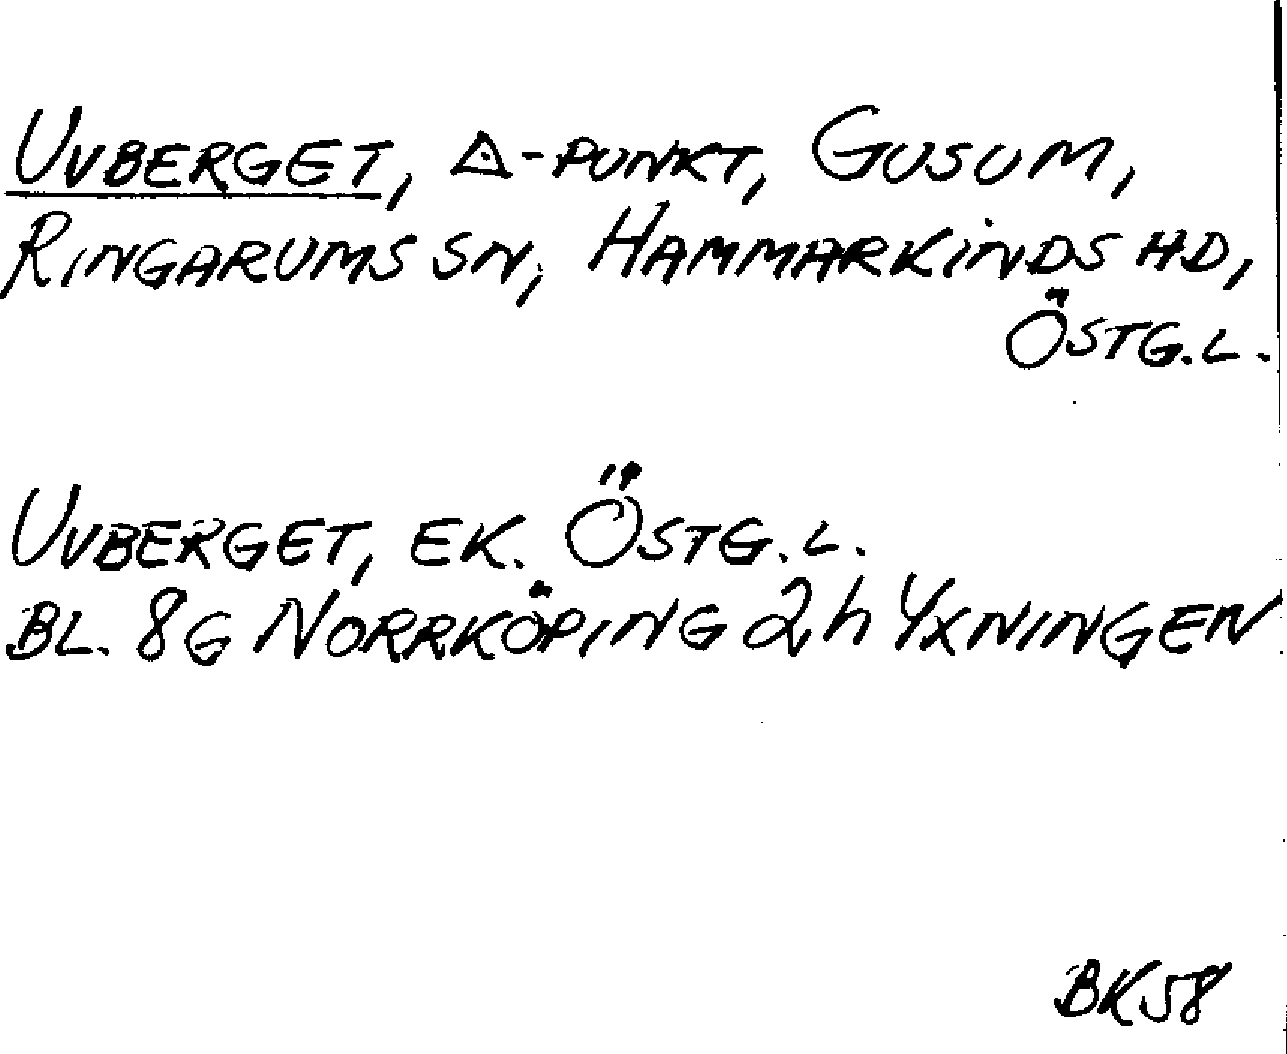 UVBERGET, △-PUNKT, GUSUM,
RINGARUMS SN, HAMMARKINDS HD,
ÖSTG.L.
UVBERGET, EK. ÖSTG.L.
BL. 8G NORRKÖPING 2h YXNINGEN
BK58